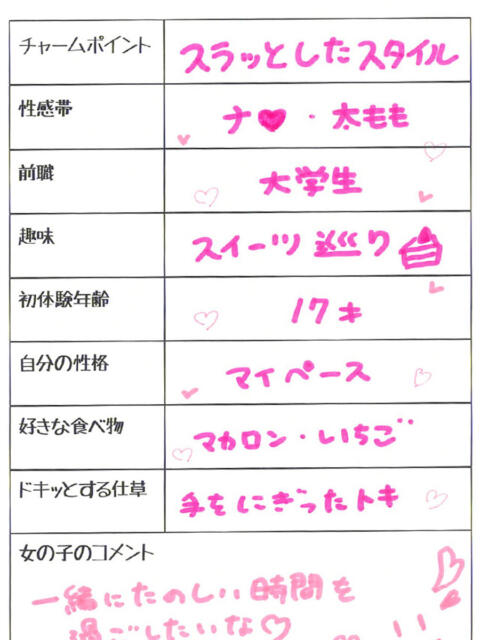 チャームポイント スラッとしたスタイル
性感帯 ナ♥・太もも
前職 大学生
趣味 スイーツ巡り
初体験年齢 17才
自分の性格 マイペース
好きな食べ物 マカロン・いちご
ドキッとする仕草 手をにぎったトキ
女の子のコメント
一緒にたのしい時間を
過ごしたいな♡